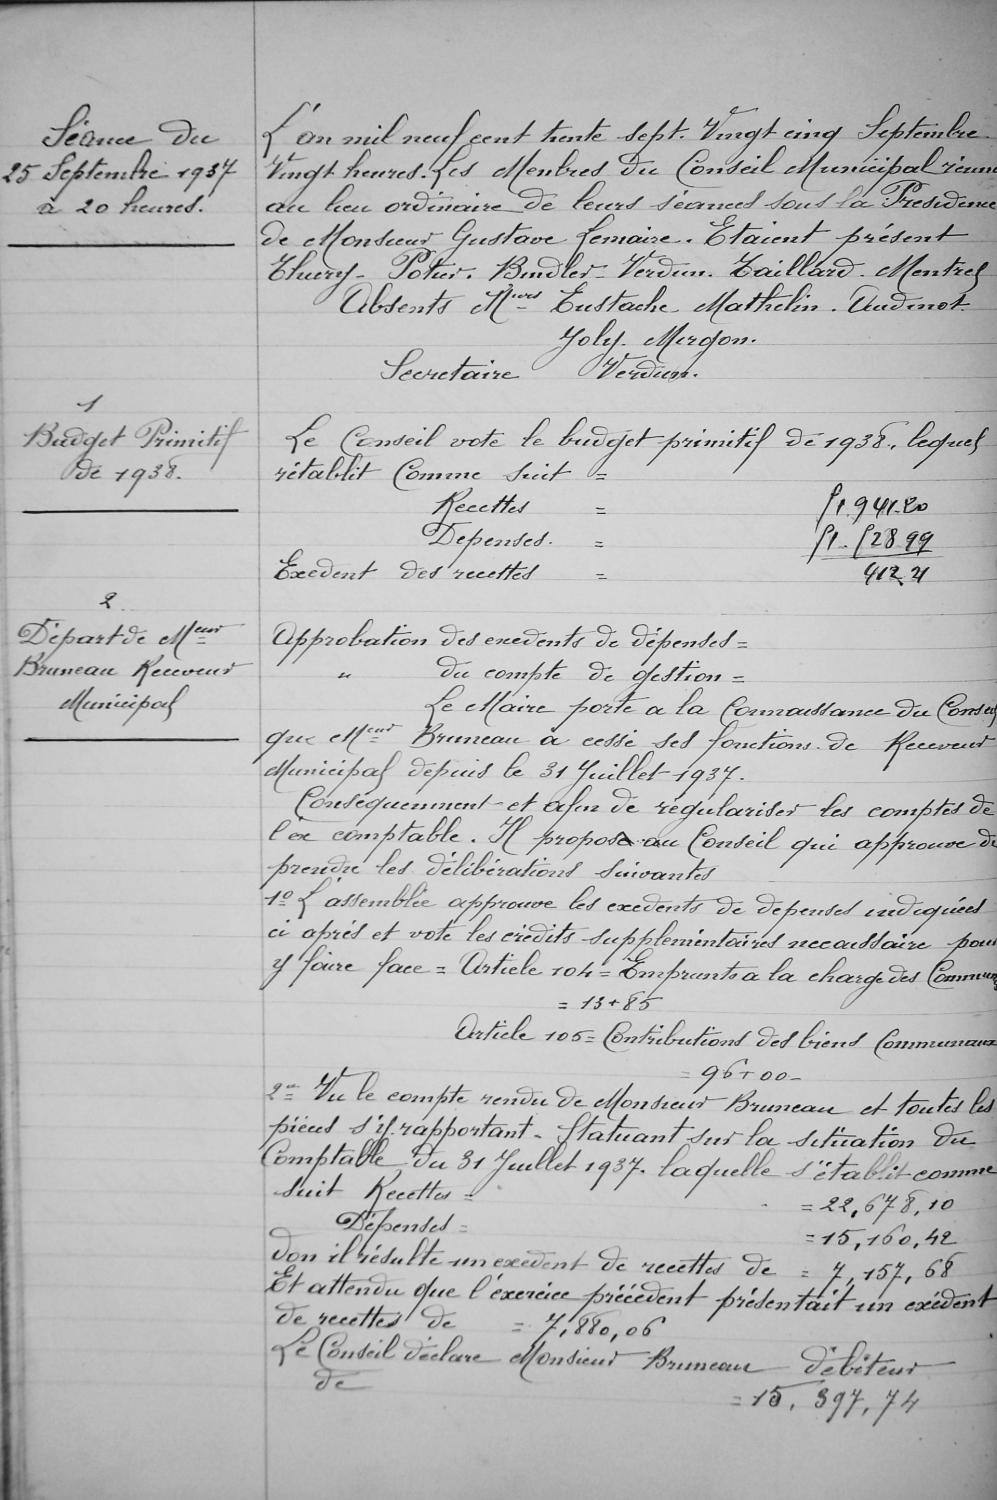 Séance du
25 Septembre 1937
à 20 heures.
L'an mil neuf cent trente sept. Vingt cinq Septembre
Vingt heures. Les Membres du Conseil Municipal réuni
au lieu ordinaire de leurs séances sous la Presidence
de Monsieur Gustave Lemaire. Etaient présent
Thiery - Potier. Bindler - Verdun. Taillard. Mentrel
Absents Mrs Eustache Mathelin. Audinot.
Joly. Mergon.
Secretaire Verdun.
1
Budget Primitif
de 1938.
Le Conseil vote le budget primitif de 1938, lequel
s'établit Comme suit =
Recettes = 51.941.20
Depenses. = 51.528.99
Exedent des recettes = 412.21
2
Départ de Meur
Bruneau Receveur
Municipal
Approbation des exedents de dépenses =
" du compte de gestion =
Le Maire porte a la Connaissance du Conseil
que Meur Bruneau a cessé ses fonctions de Receveur
Municipal depuis le 31 Juillet 1937.
Conséquemment et afin de régulariser les comptes de
l'ex comptable. Il propose au Conseil qui approuve de
prendre les délibérations suivantes
1º L'assemblée approuve les exedents de depenses indiquées
ci aprés et vote les crédits supplémentaires necaussaire pour
y faire face = Article 104 = Emprunts a la charge des Communes
= 13+85
Article 105 = Contributions des biens Communaux
= 96+00 -
2º = Vu le compte rendu de Monsieur Bruneau et toutes les
piéces s'y rapportant - Statuant sur la situation du
Comptable du 31 Juillet 1937. laquelle s'établit comme
suit Recettes = = 22,678,10
Dépenses = = 15,160,42
don il résulte un exedent de recettes de = 7,157,68
Et attendu que l'éxercice précédent présentait un exédent
de recettes de = 7,880,06
Le Conseil déclare Monsieur Bruneau débiteur
de = 15,397,74